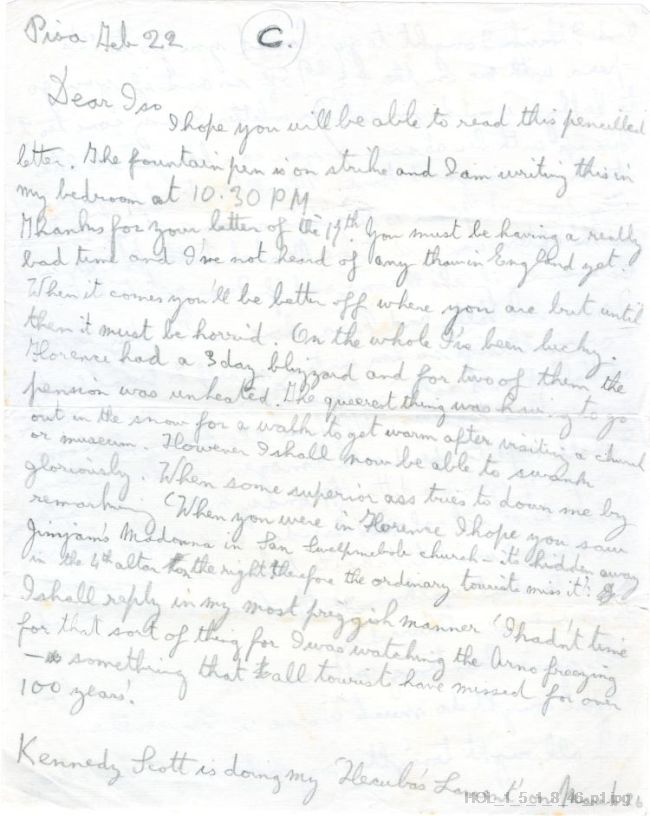 Pisa Feb 22 C.
Dear Iso
I hope you will be able to read this pencilled
letter. The fountain pen is on strike and I am writing this in
my bedroom at 10.30 PM
Thanks for your letter of the 17th. You must be having a really
bad time and I've not heard of any thaw in England yet.
When it comes you'll be better off where you are but until
then it must be horrid. On the whole I've been lucky.
Florence had a 3 day blizzard and for two of them the
pension was unheated. The queerest thing was having to go
out in the snow for a walk to get warm after visiting a church
or museum. However I shall now be able to swank
gloriously. When some superior ass tries to down me by
remarking 'When you were in Florence I hope you saw
Jimjam's Madonna in San church – it's hidden away
in the 4th altar on the right & therefore the ordinary tourists miss it'.
I shall reply in my most priggish manner 'I hadn't time
for that sort of thing for I was watching the Arno freezing
– something that all tourists have missed for over
100 years'.
Kennedy Scott is doing my 'Hecuba's Lament' on March
HOL_1_5_1_8_46_p1.jpg